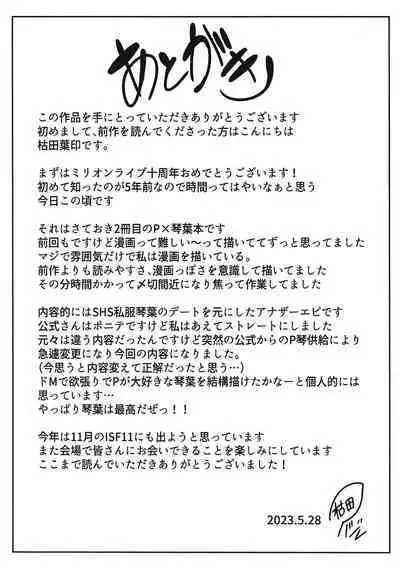 あとがき
この作品を手にとっていただきありがとうございます
初めまして、前作を読んでくださった方はこんにちは
枯田葉印です。
まずはミリオンライブ十周年おめでとうございます！
初めて知ったのが5年前なので時間ってはやいなぁと思う
今日この頃です
それはさておき2冊目のP×琴葉本です
前回もですけど漫画って難しい〜って描いててずっと思ってました
マジで雰囲気だけで私は漫画を描いている。
前作よりも読みやすさ、漫画っぽさを意識して描いてました
その分時間かかって〆切間近になり焦って作業してました
内容的にはSHS私服琴葉のデートを元にしたアナザーエピです
公式さんはポニテですけど私はあえてストレートにしました
元々は違う内容だったんですけど突然の公式からのP琴供給により
急遽変更になり今回の内容になりました。
（今思うと内容変えて正解だったと思う…）
ドMで欲張りでPが大好きな琴葉を結構描けたかなーと個人的には
思っています…
やっぱり琴葉は最高だぜっ！！
今年は11月のISF11にも出ようと思っています
また会場で皆さんにお会いできることを楽しみにしています
ここまで読んでいただきありがとうございました！
2023.5.28
枯田